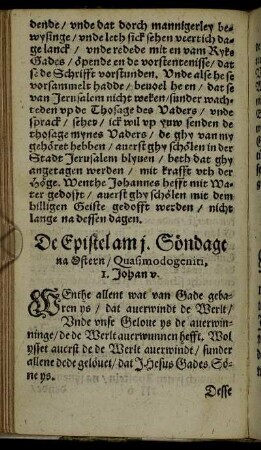 dende / vnde dat dorch mannigerley be-
wysinge / vnde leth sick sehen veertich da-
ge lanck / vnde redede mit en vam Ryke
Gades / öpende en de vorstentenisse / dat
se de Schrifft vorstunden. Vnde alse he se
vorsammelt hadde / beuoel he en / dat se
van Jerusalem nicht weken / sunder wach-
teden vp de Thosage des Vaders / vnde
sprack / sehet / ick wil vp yuw senden de
thosage mynes Vaders / de ghy van my
gehöret hebben / auerst ghy schölen in der
Stadt Jerusalem blyuen / beth dat ghy
angetagen werden / mit krafft vth der
Höge. Wenthe Johannes hefft mit Wa-
ter gedofft / auerst ghy schölen mit dem
hilligen Geiste gedofft werden / nicht
lange na dessen dagen.
De Epistel am j. Söndage
na Ostern / Quasimodogeniti,
1. Johan v.
WEnthe allent wat van Gade geba-
ren ys / dat auerwindt de Werlt /
Vnde vnse Geloue ys de auerwin-
ninge / de de Werlt auerwunnen hefft. Wol
ysset auerst de de Werlt auerwindt / sunder
allene de de gelöuet / dat JHesus Gades Sö-
ne ys.
Desse